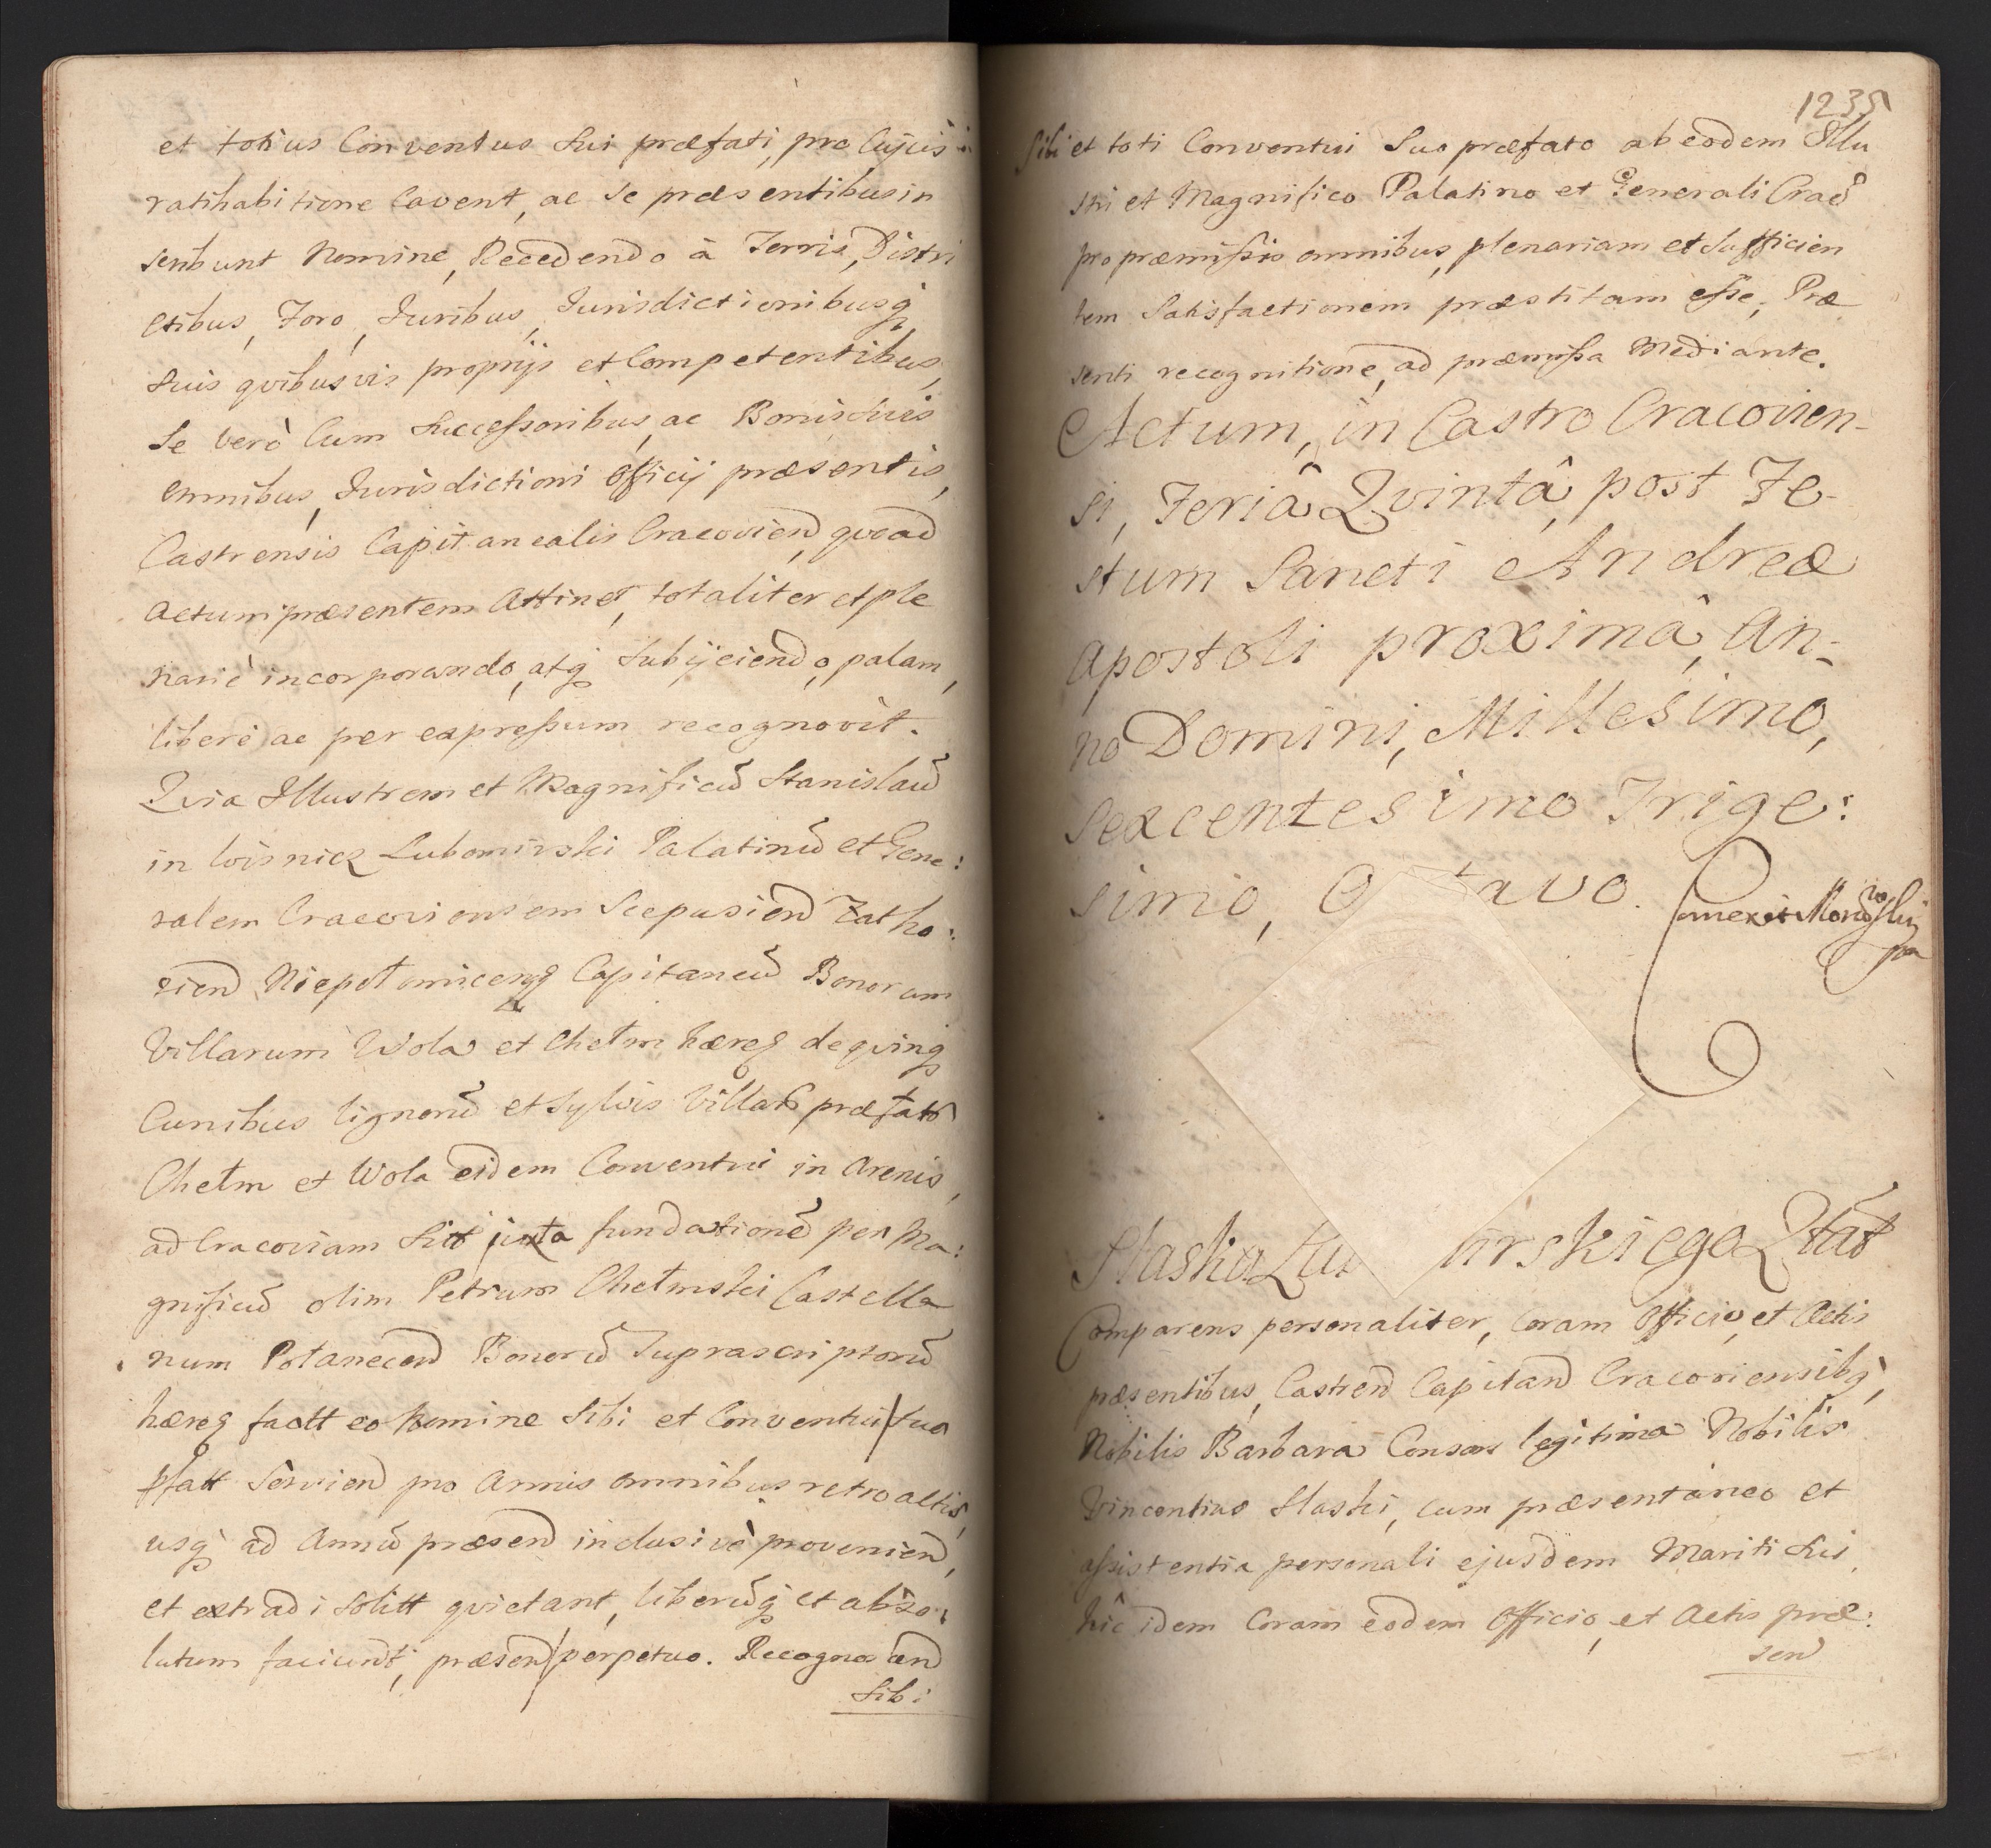 et totius Conventus Sui præfati, pro Cujus
ratihabitione Cavent, ac Se præsentibus in
scribunt Nomine, Recedendo à Terris, Distri
ctibus, Foro, Juribus, Jurisdictionibusq
Suis qvibusvis proprijs et Competentibus,
Se verò Cum Successoribus, ac Bonis Suis
omnibus, Jurisdictioni Officij præsentis,
Castrensis Capitanealis Cracovien, qvoad
Actum præsentem Attinet, totaliter et ple
nariè incorporando, atq Subijciendo, palam,
liberè ac per expressum recognovit.
Qvia Illustrem et Magnificū Stanislaū
in Wisnicz Lubomirski Palatinū et Gene:
ralem Cracoviensem Scepusien Zatho:
rien Niepołomicenq Capitaneū Bonorum
Villarum Wola et Chełm hæred de qvinq
Cunibus lignorū et Sylvis Villar præfatar
Chełm et Wola eidem Conventui in Arenis,
ad Cracoviam Sitt juxta fundationē per Ma:
gnificū olim Petrum Chełmski Castella
num Połanecen Bonorū Suprascriptorū
hæred factt eo Nomine Sibi et Conventui Suo
pfatt Servien pro Annis omnibus retroactis,
usq ad Annū præsen inclusivè provenien,
et extradi Solitt qvietant, liberūq et abso:
lutum faciunt, præsen perpetuo. Recognoscen
Sibi
1235
Sibi et toti Conventui Suo præfato ab eodem Illu
stri et Magnifico Palatino et Generali Crac
pro præmissis omnibus, plenariam et Sufficien
tem Satisfactionem præstitam esse, Præ
senti recognitione, ad præmissa Mediante.
Actum, in Castro Cracovien-
si, Feriâ Qvintâ, post Fe-
stum Sancti Andreæ
Apostoli proximâ, An-
no Domini, Millesimo,
Sexcentesimo Trige:
simo, O tavo.
Staska Lu irskiego Qtat
Comparens personaliter, Coram Officio, et Actis
præsentibus, Castren Capitan Cracoviensibq,
Nobilis Barbara Consors legitima Nobilis
Vincentius Staski, cum præsentaneo et
assistentia personali ejusdem Mariti Sui,
hîc idem Coram eodem Officio, et Actis præ:
sen